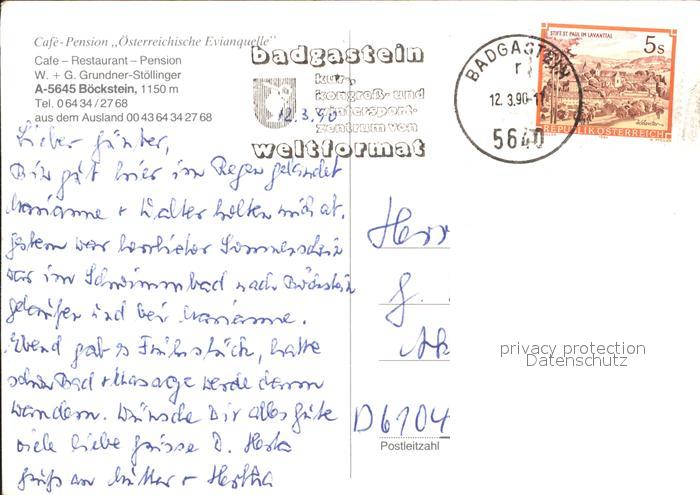 Café-Pension „Österreichische Evianquelle"
Cafe – Restaurant – Pension
W. + G. Grundner-Stöllinger
A-5645 Böckstein, 1150 m
Tel. 0 64 34 / 27 68
aus dem Ausland 00 43 64 34 27 68
badgastein
kur-,
kongreß- und
wintersport-
zentrum von
weltformat
BADGASTEIN
12. 3. 90-17
5640
STIFT ST. PAUL IM LAVANTTAL
5 S
REPUBLIK ÖSTERREICH
12.3.90
Lieber Günter,
Bin gut hier im Regen gelandet
Marianne + Walter holten mich ab.
gestern war herrlicher Sonnenschein
war im Schwimmbad nach Böckstein
gelaufen und bei Marianne.
Eben gab es Frühstück, hatte
schon Bad + Massage werde dann
wandern. Wünsche Dir alles gute
viele liebe grüsse D. Herta
Gruß an Mutter + Hertha
Herrn
G.
D6104
Postleitzahl
privacy protection
Datenschutz